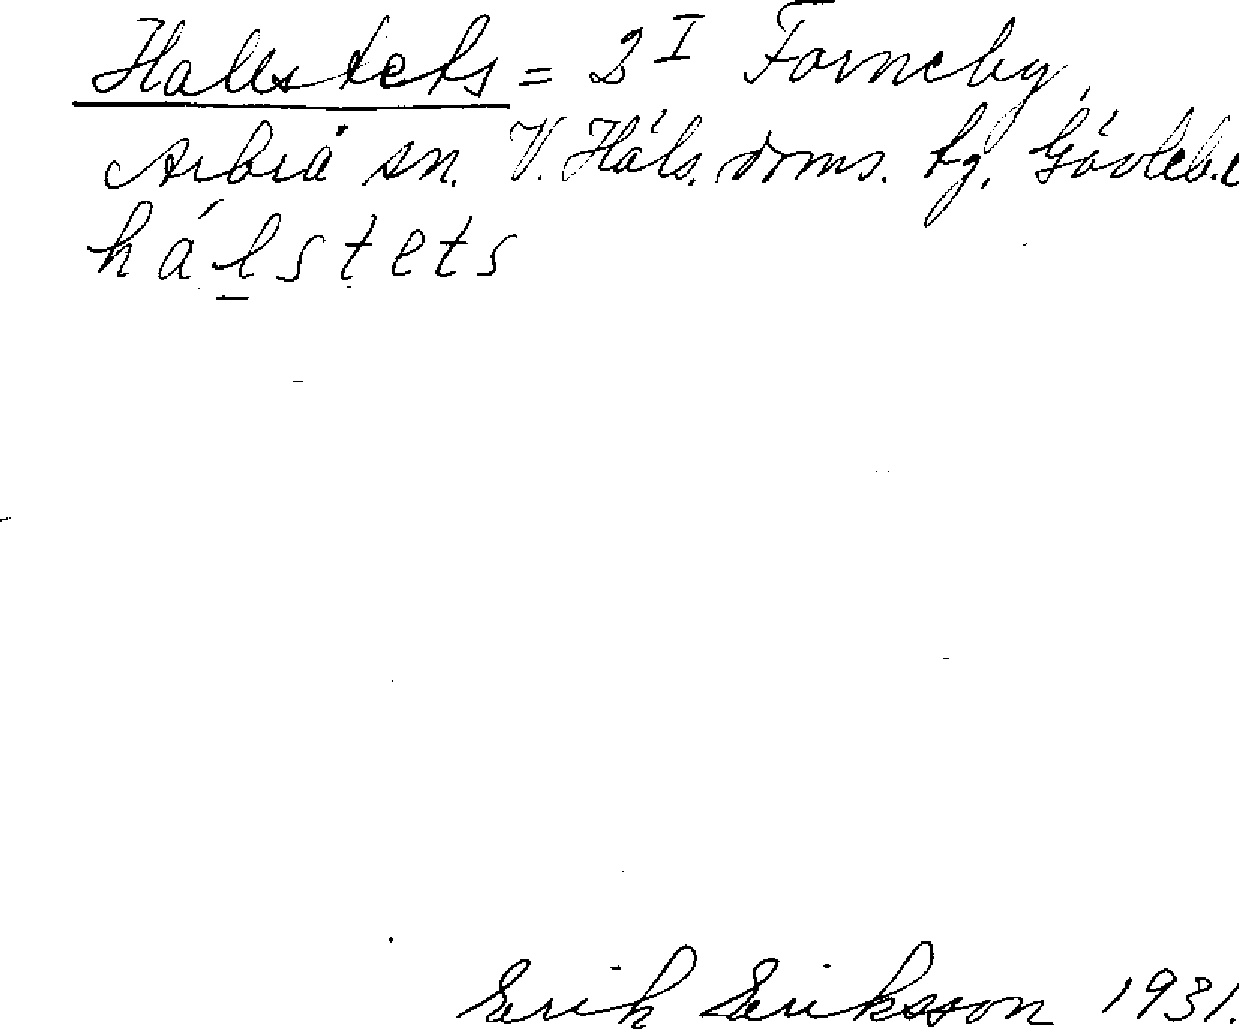 Hallstets = 2 I Forneby,
Arbrå sn. V. Häls. doms. tg. Gävleb.l
hálstets
Erik Eriksson 1931.